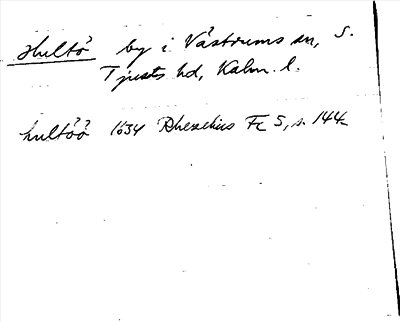 Hultö by i Västrums sn, S.
Tjusts hd, Kalm. l.
hultöö 1634 Rhezelius Fc 5, s. 144